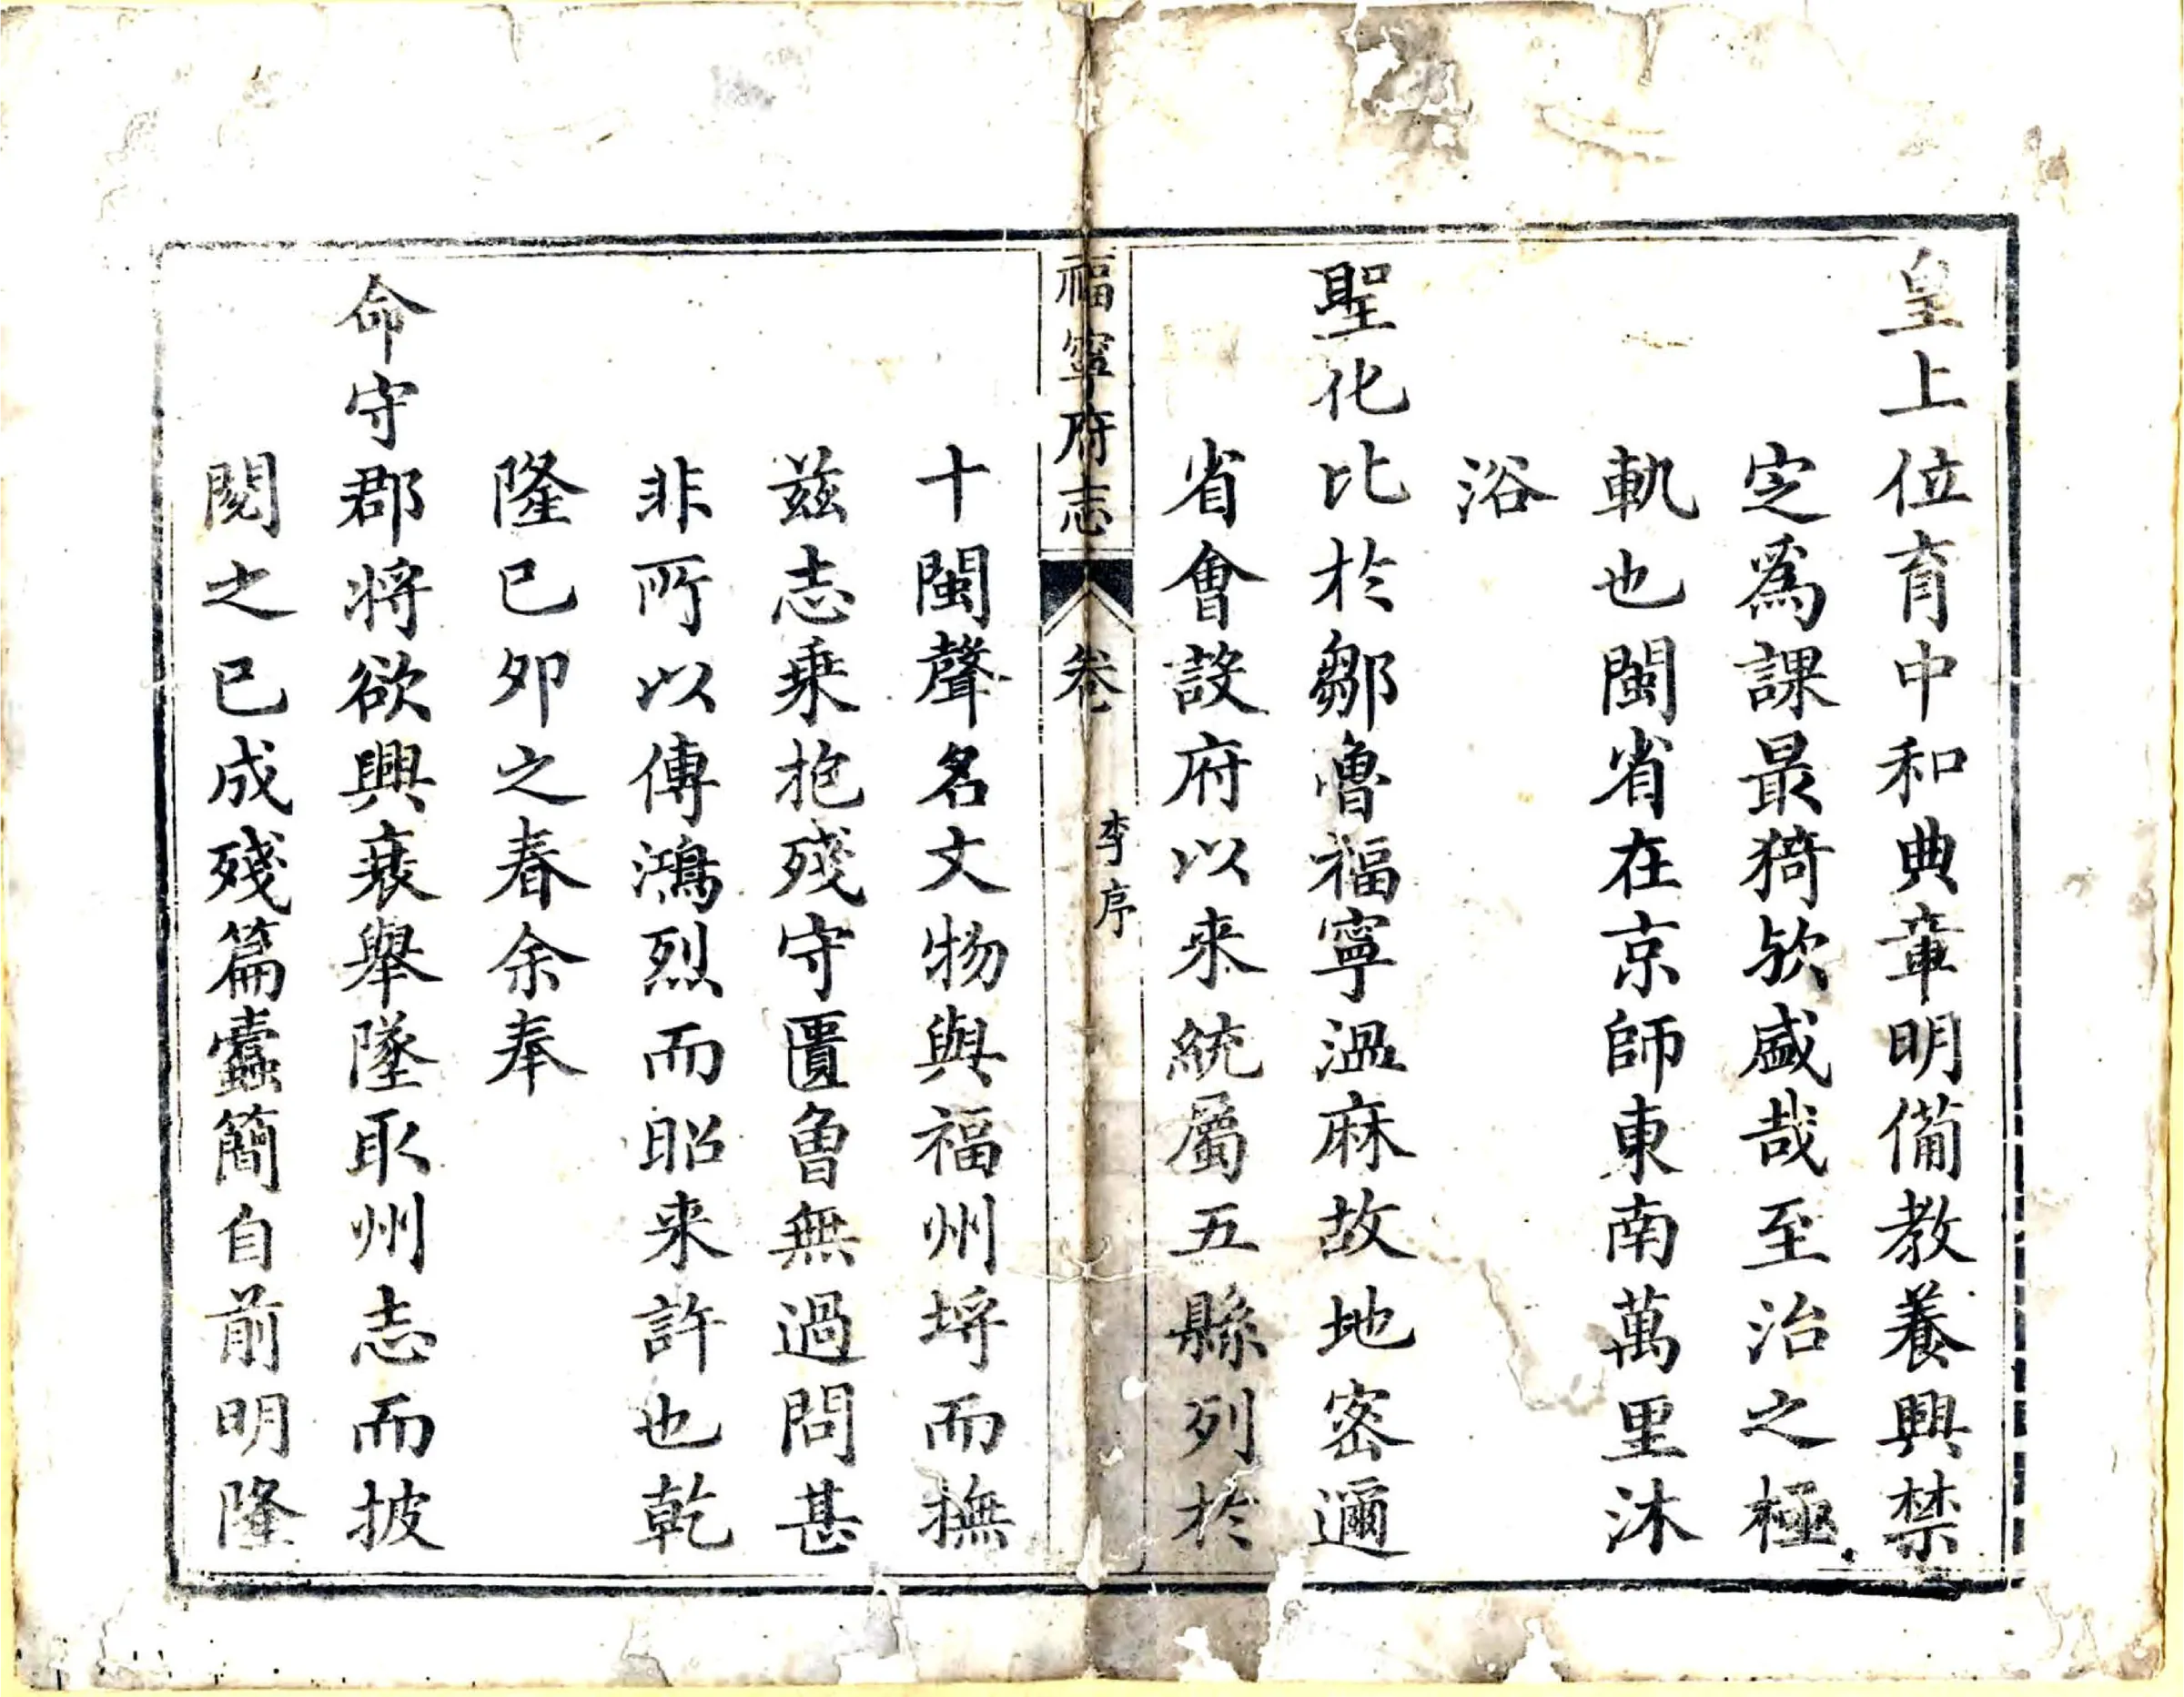 皇上位育中和典章明備教養興禁
定爲課最猗欤盛哉至治之極
軌也閩省在京師東南萬里沐
浴
聖化比於鄒魯福寧溫麻故地密邇
省會設府以来統屬五縣列於
福寧府志
卷
李序
十閩聲名文物與福州埒而撫
茲志乘抱殘守匱曾無過問甚
非所以傳鴻烈而昭来許也乾
隆己卯之春余奉
命守郡將欲興衰舉墜取州志而披
閱之已成殘篇蠹簡自前明隆